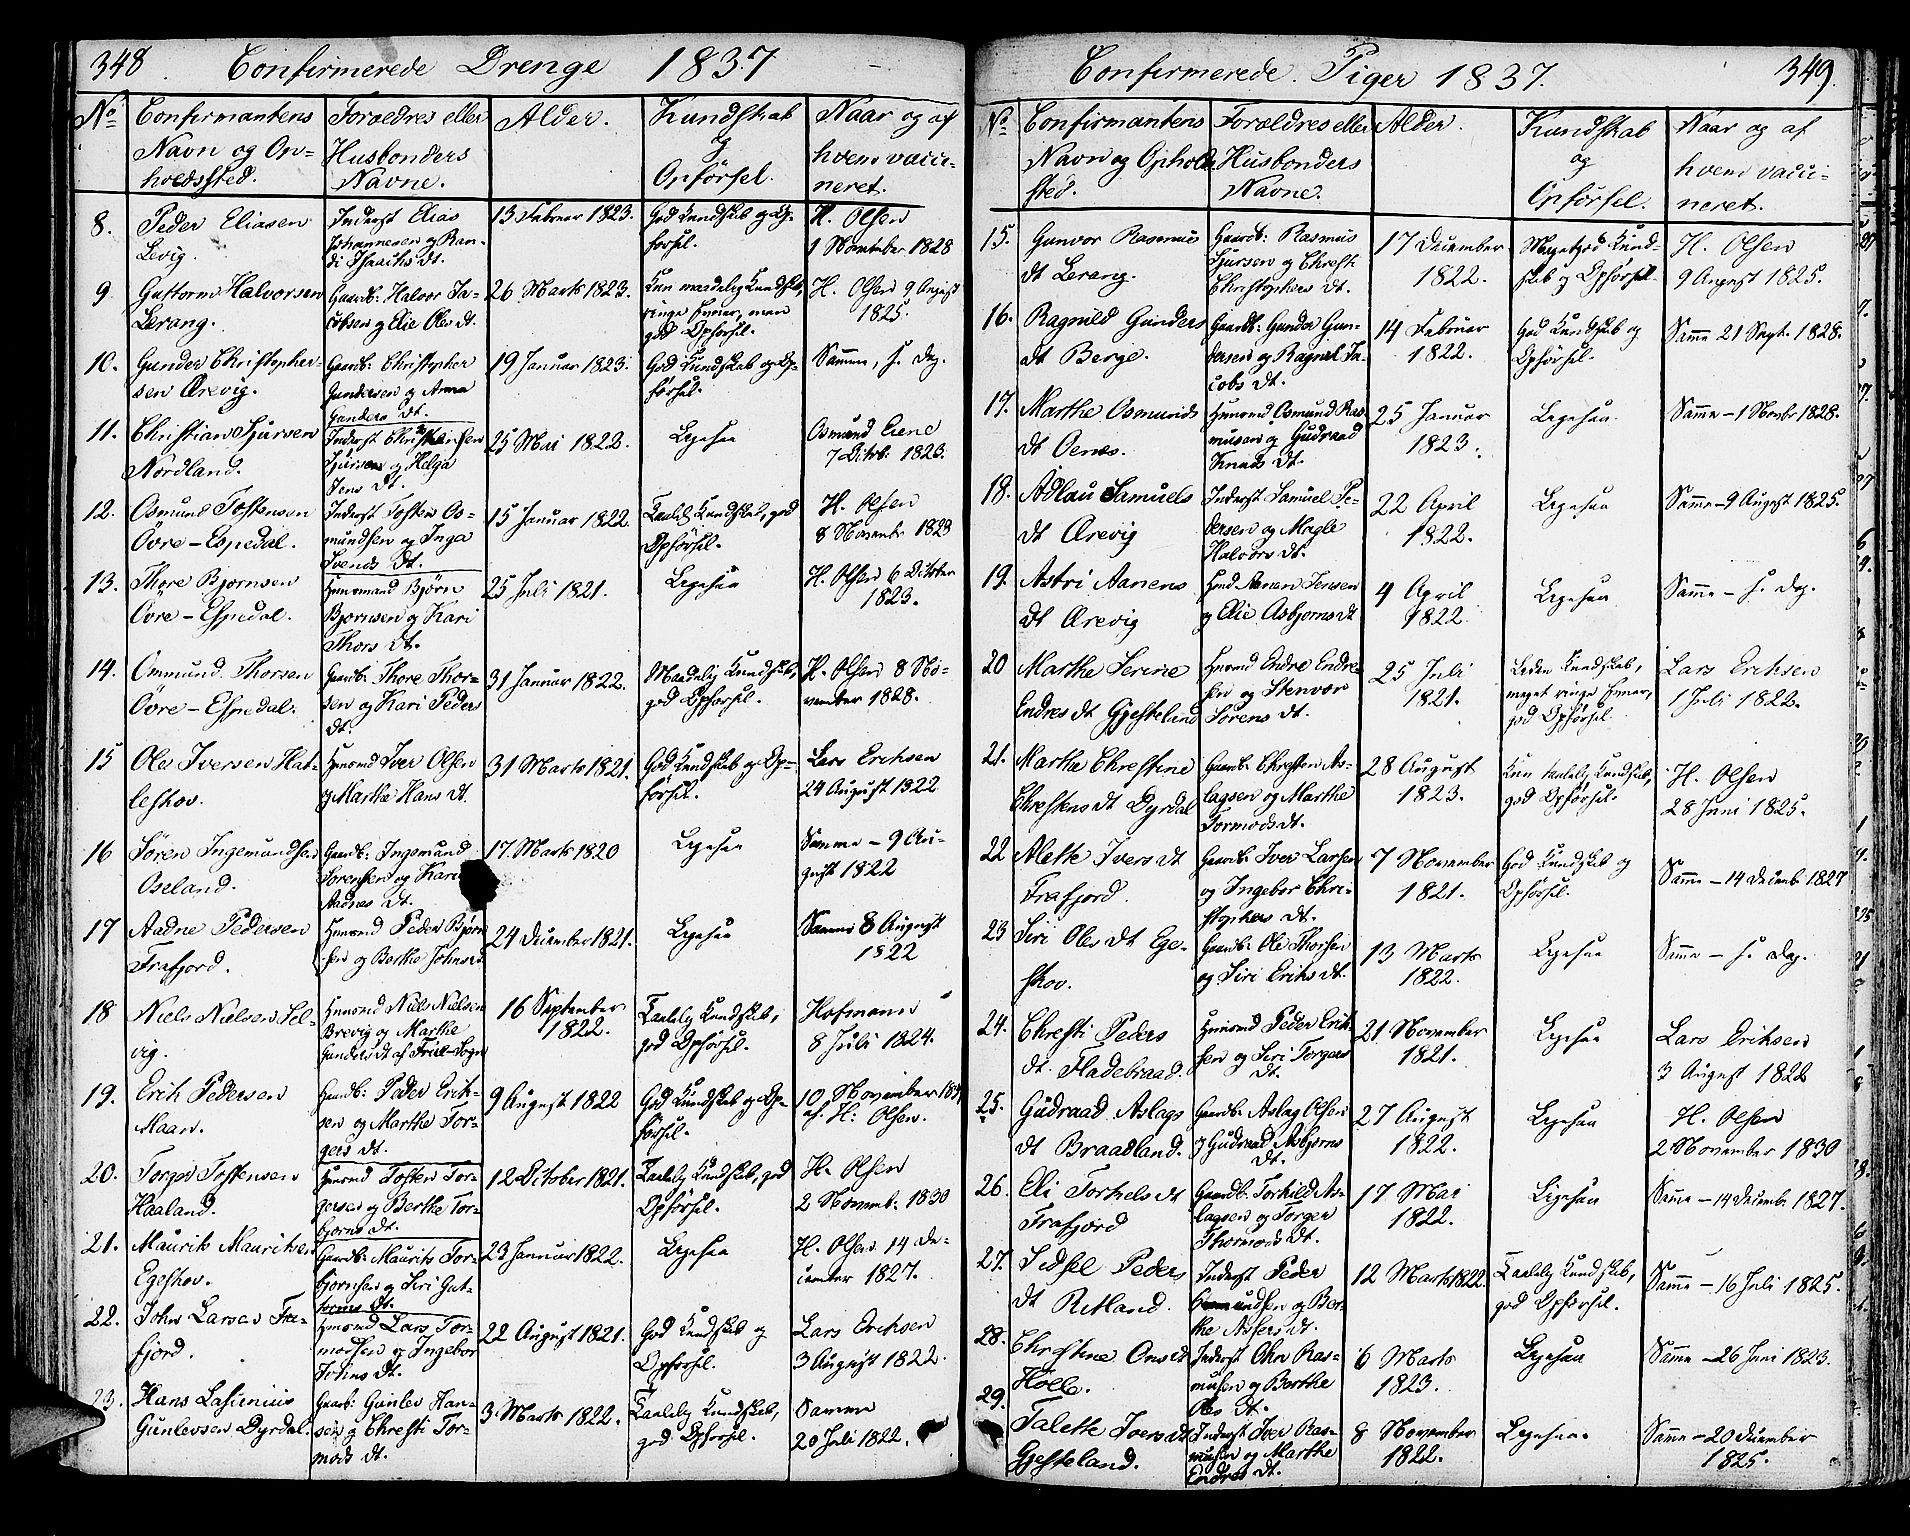 348 Confirmerede Drenge 1837
No Confirmantens Navn og Opholdssted. Forældres eller Husbonders Navne. Alder. Kundskab og Opførsel. Naar og af hvem vaccineret.
8. Peder Eliasen Levig. Inderst Elias Johannesen og Randi Isaachs dt. 13 Februar 1823. God Kundskab og Opførsel. H. Olsen 1 November 1828
9 Guttorm Halvorsen Lerang. Gaardb: Halvor Jacobsen og Elie Oles dt. 26 Marts 1823. Kun maadelig Kundskab, ringe Evner, men god Opførsel. H. Olsen 9 August 1825.
10. Gunder Christophersen Ørevig. Gaardb: Christopher Gundersen og Anna Gunders dt. 19 Januar 1823. God Kundskab og Opførsel. Samme, s. Dag.
11. Christian Sjursen Nordland. Inderst Sjursen og Helga Jens dt. 25 Mai 1822. Ligesaa Osmund Eiene 7 Octob. 1823.
12. Osmund Tostensen Øvre-Espedal. Inderst Tosten Osmundsen og Inga Svends dt. 15 Januar 1822. Taalelig Kundskab, god Opførsel. H. Olsen 8 Novembr 1828
13. Thore Bjornsen Øvre-Espedal. Huusmand Bjørn Bjornsen og Kari Thors dt. 25 Juli 1821. Ligesaa H. Olsen 6 October 1823.
14. Ommund Thorsen Øvre-Espedal. Gaardb: Thore Thorsen og Kari Peders dt. 31 Januar 1822. Maadelig Kundskab, god Opførsel. H. Olsen 8 November 1828.
15 Ole Iversen Hatleskov. Huusmd Iver Olsen og Marthe Hans dt. 31 Marts 1821. God Kundskab og Opførsel. Lars Erichsen 24 August 1822
16 Søren Ingemundsen Oseland. Gaardb: Ingemund Sorensen og Kari Aadnes dt. 17. Marts 1820 Ligesaa Samme - 9 August 1822
17 Aadne Pedersen Frafjord. Huusmd Peder Bjørnsen og Berthe Johns dt. 24 December 1821. Ligesaa Samme 8 August 1822
18 Niels Nielsen Selvig. Huusmd Niels Nielsen Brevig og Marthe Gunders dt af Sogn 16 September 1822. Taalelig Kundskab, god Opførsel. Hofmann 8 Juli 1824.
19. Erik Pedersen Maan. Gaardb: Peder Eriksen og Marthe Torgers dt. 9 August 1822 God Kundskab og Opførsel. 10 November af H. Olsen.
20. Torger Tostensen Haaland. Huusmd Tosten Torgersen og Berthe Torbjorns dt. 12 October 1821. Taalelig Kundskab, god Opførsel. H. Olsen 2 Novemb. 1830
21. Maurits Mauritsen Egeskov. Gaardb: Maurits Torbjornsen og Siri Guttorms dt. 23 Januar 1822. Ligesaa H. Olsen 14 December 1827.
22. John Larsen Frafjord. Huusmd Lars Tormodsen og Ingebor Johns dt. 22 August 1821. God Kundskab og Opførsel. Lars Erichsen 3 August 1822.
23. Hans Lasinius Gunlevsen Dyrdal. Gaardb: Gunlev Hansen og Chresti Tormods dt. 3. Marts 1822. Taalelig Kundskab, god Opførsel. Samme 20 Juli 1822.
Confirmerede Piger 1837. 349.
No Confirmantens Navn og Opholdsted. Forældres eller Husbonders Navne. Alder. Kundskab og Opførsel. Naar og af hvem vaccineret.
15. Gunvor Rasmus dt Lerang. Gaardb: Rasmus Sjursen og Chresti Christophers dt. 17 December 1822. Meget god Kundskab og Opførsel. H. Olsen 9 August 1825.
16. Ragnild Gunders dt Berge. Gaardb: Gunder Gundersen og Ragnil Jacobs dt. 14 Februar 1822. God Kundskab og Opførsel. Samme 21 Sept. 1828.
17. Marthe Osmunds dt Oenes. Huusmd Osmund Rasmusen og Gudraad Knuds dt. 25 Januar 1823. Ligesaa Samme - 1 Novbr 1828.
18. Adlau Samuels dt Ørevig Inderst Samuel Pedersen og Magle Halvors dt. 22 April 1822. Ligesaa Samme - 9 August 1825.
19. Astri Aanens dt Ørevig Aanen Jensen og Elie Asbjorns dt 4 April 1822. Ligesaa Samme - s. Dag.
20 Marthe Serine Endres dt Gjesteland Huusmd Endre Endresen og Stenvor Sorens dt. 25 Juli 1821. Liden Kundskab, meget ringe Evner, god Opførsel. Lars Erichsen 1 Juli 1822.
21. Marthe Chrestine Chrestens dt Dyrdal Gaardb: Chresten Aslagsen og Marthe Tormods dt. 28 August 1823. Kun taalelig Kundskab, god Opførsel. H. Olsen 28 Juni 1825.
22 Alette Ivers dt Frafjord. Gaardb: Iver Larsen og Ingebor Christophers dt. 7 November 1821. God Kundskab og Opførsel. Samme - 14 Decemb 1827
23 Siri Oles dt Egeskov. Gaardb: Ole Thorsen og Siri Eriks dt. 13 Marts 1822. Ligesaa Samme - s. Dag.
24. Chresti Peders dt. Fladebraad. Huusmd Peder Eriksen og Siri Torgers dt. 21 November 1821. Ligesaa Lars Eriksen 3 August 1822
25. Gudraad Aslags dt Braadland. Gaardb: Aslag Olsen og Gudraad Asbjorns dt. 27 August 1822. Ligesaa H. Olsen 2 November 1830
26. Eli Torkels dt Frafjord Gaardb: Torkild Aslagsen og Torger Thormods dt. 17 Mai 1822. Ligesaa Samme - 14 Decembr 1827.
27. Sidsel Peders dt Retland. Inderst Peder og Berthe Assers dt. 12 Marts 1822. Taalelig Kundskab, god Opførsel. Samme - 16 Juli 1825.
28. Chrestine Ons dt Holle. Inderst Ohn Rasmusen og Berthe Oles dt. 6 Marts 1823. Ligesaa Samme - 26 Juni 1823.
29. Talette Ivers dt Gjesteland. Inderst Iver Rasmusen og Marthe Endres dt. 8 November 1822. Ligesaa. Samme - 20 December 1825.